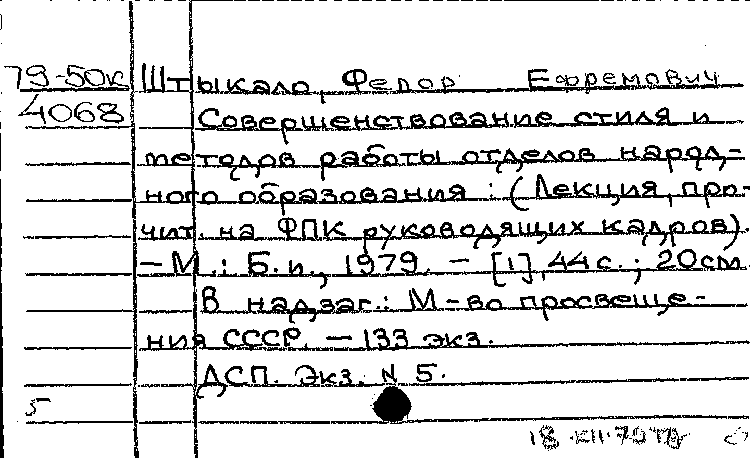 79-50к Штыкало, Федор Ефремович
4068 Совершенствование стиля и
методов работы отделов народ-
ного образования : (Лекция, про-
чит. на ФПК руководящих кадров).
– М.: Б. и., 1979. – [1], 44 с. ; 20 см
В надзаг.: М-во просвеще-
ния СССР. – 133 экз.
ДСП. Экз. N 5.
5
18.XII.79